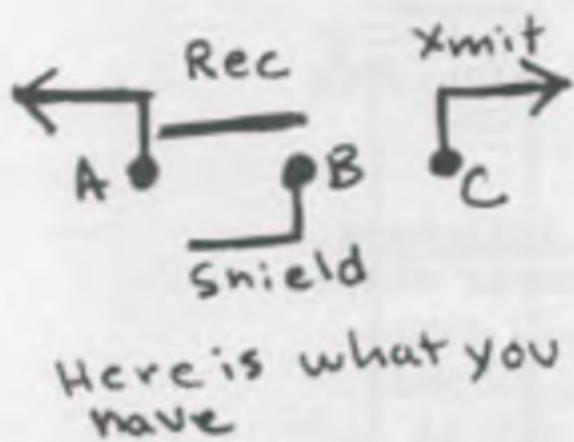 Rec
Xmit
A
B
C
Shield
Here is what you
have